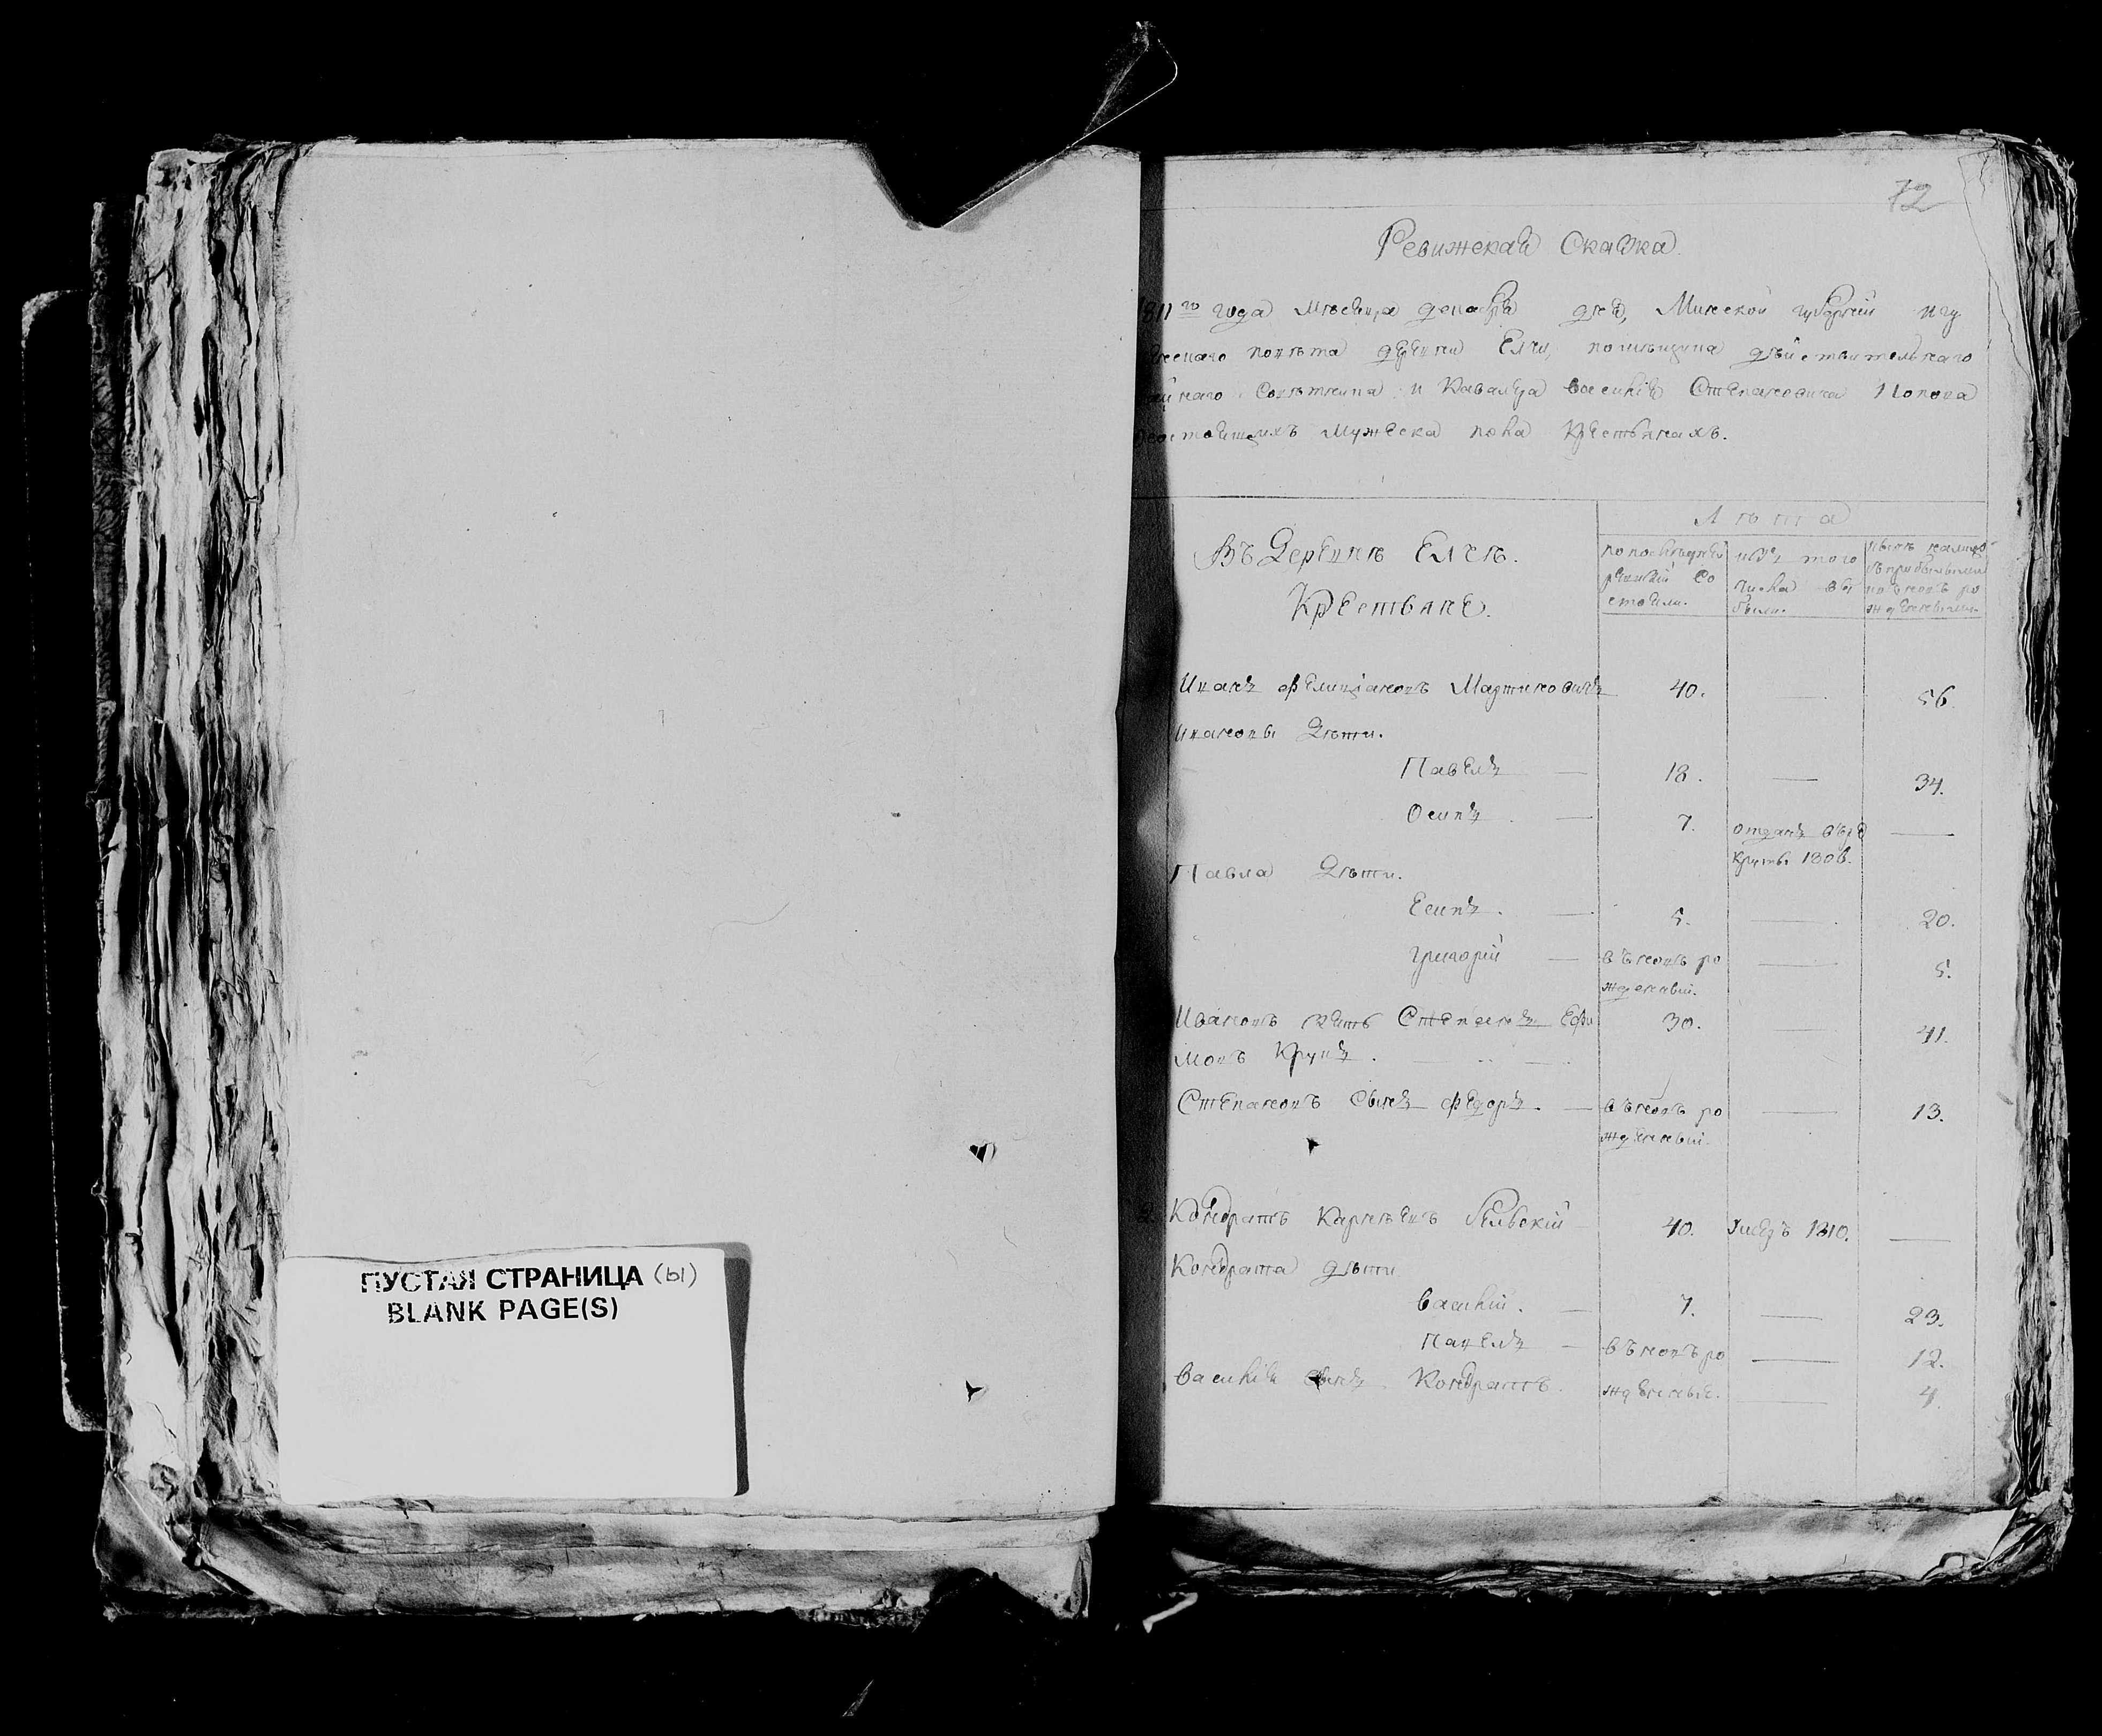 ПУСТАЯ СТРАНИЦА (ы)
BLANK PAGE(S)
72
Ревижская Сказка.
811го года Мѣсяца декабря дня, Минской губернии игу
менского повѣта деревни Ельи, помещика дѣйствительнаго
айнаго Советника и Кавалера Василия Степановича Попова
остоящихъ мужеска пола крестьянахъ.
Въ Деревнѣ Елче.
Крестьяне.
Лѣта
по последней
ревизии со
стояли.
изъ того
числа вы
были.
ныне налицо
съ прибылыми
и вновь ро
жденными.
Иванъ Фелициановъ Мартиновичъ 40. — 56.
Ивановы Дѣти.
Павелъ — 18. — 34.
Осипъ — 7. отданъ въ ре
круты 1806. —
Павла Дѣти.
Есипъ. — 5. — 20.
Григорий — вновь ро
жденный. — 5.
Ивановъ зять Степанъ Ефи
мовъ Крупъ. 30. — 41.
Степановъ сынъ Федоръ. — вновь ро
жденный. — 13.
2. Кондратъ Карнѣевъ 40. умеръ 1810. —
Кондрата дѣти
Василий. — 7. — 23.
Павелъ — вновь ро — 12.
Василия сынъ Кондратъ. жденные. — 4.